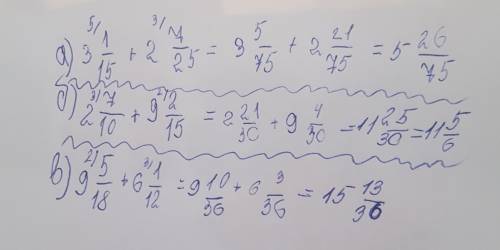 а) 3 5/ 1/15 + 2 3/ 7/25 = 3 5/75 + 2 21/75 = 5 26/75
б) 2 3/ 7/10 + 9 2/ 2/15 = 2 21/30 + 9 4/30 = 11 25/30 = 11 5/6
в) 9 2/ 5/18 + 6 3/ 1/12 = 9 10/36 + 6 3/36 = 15 13/36